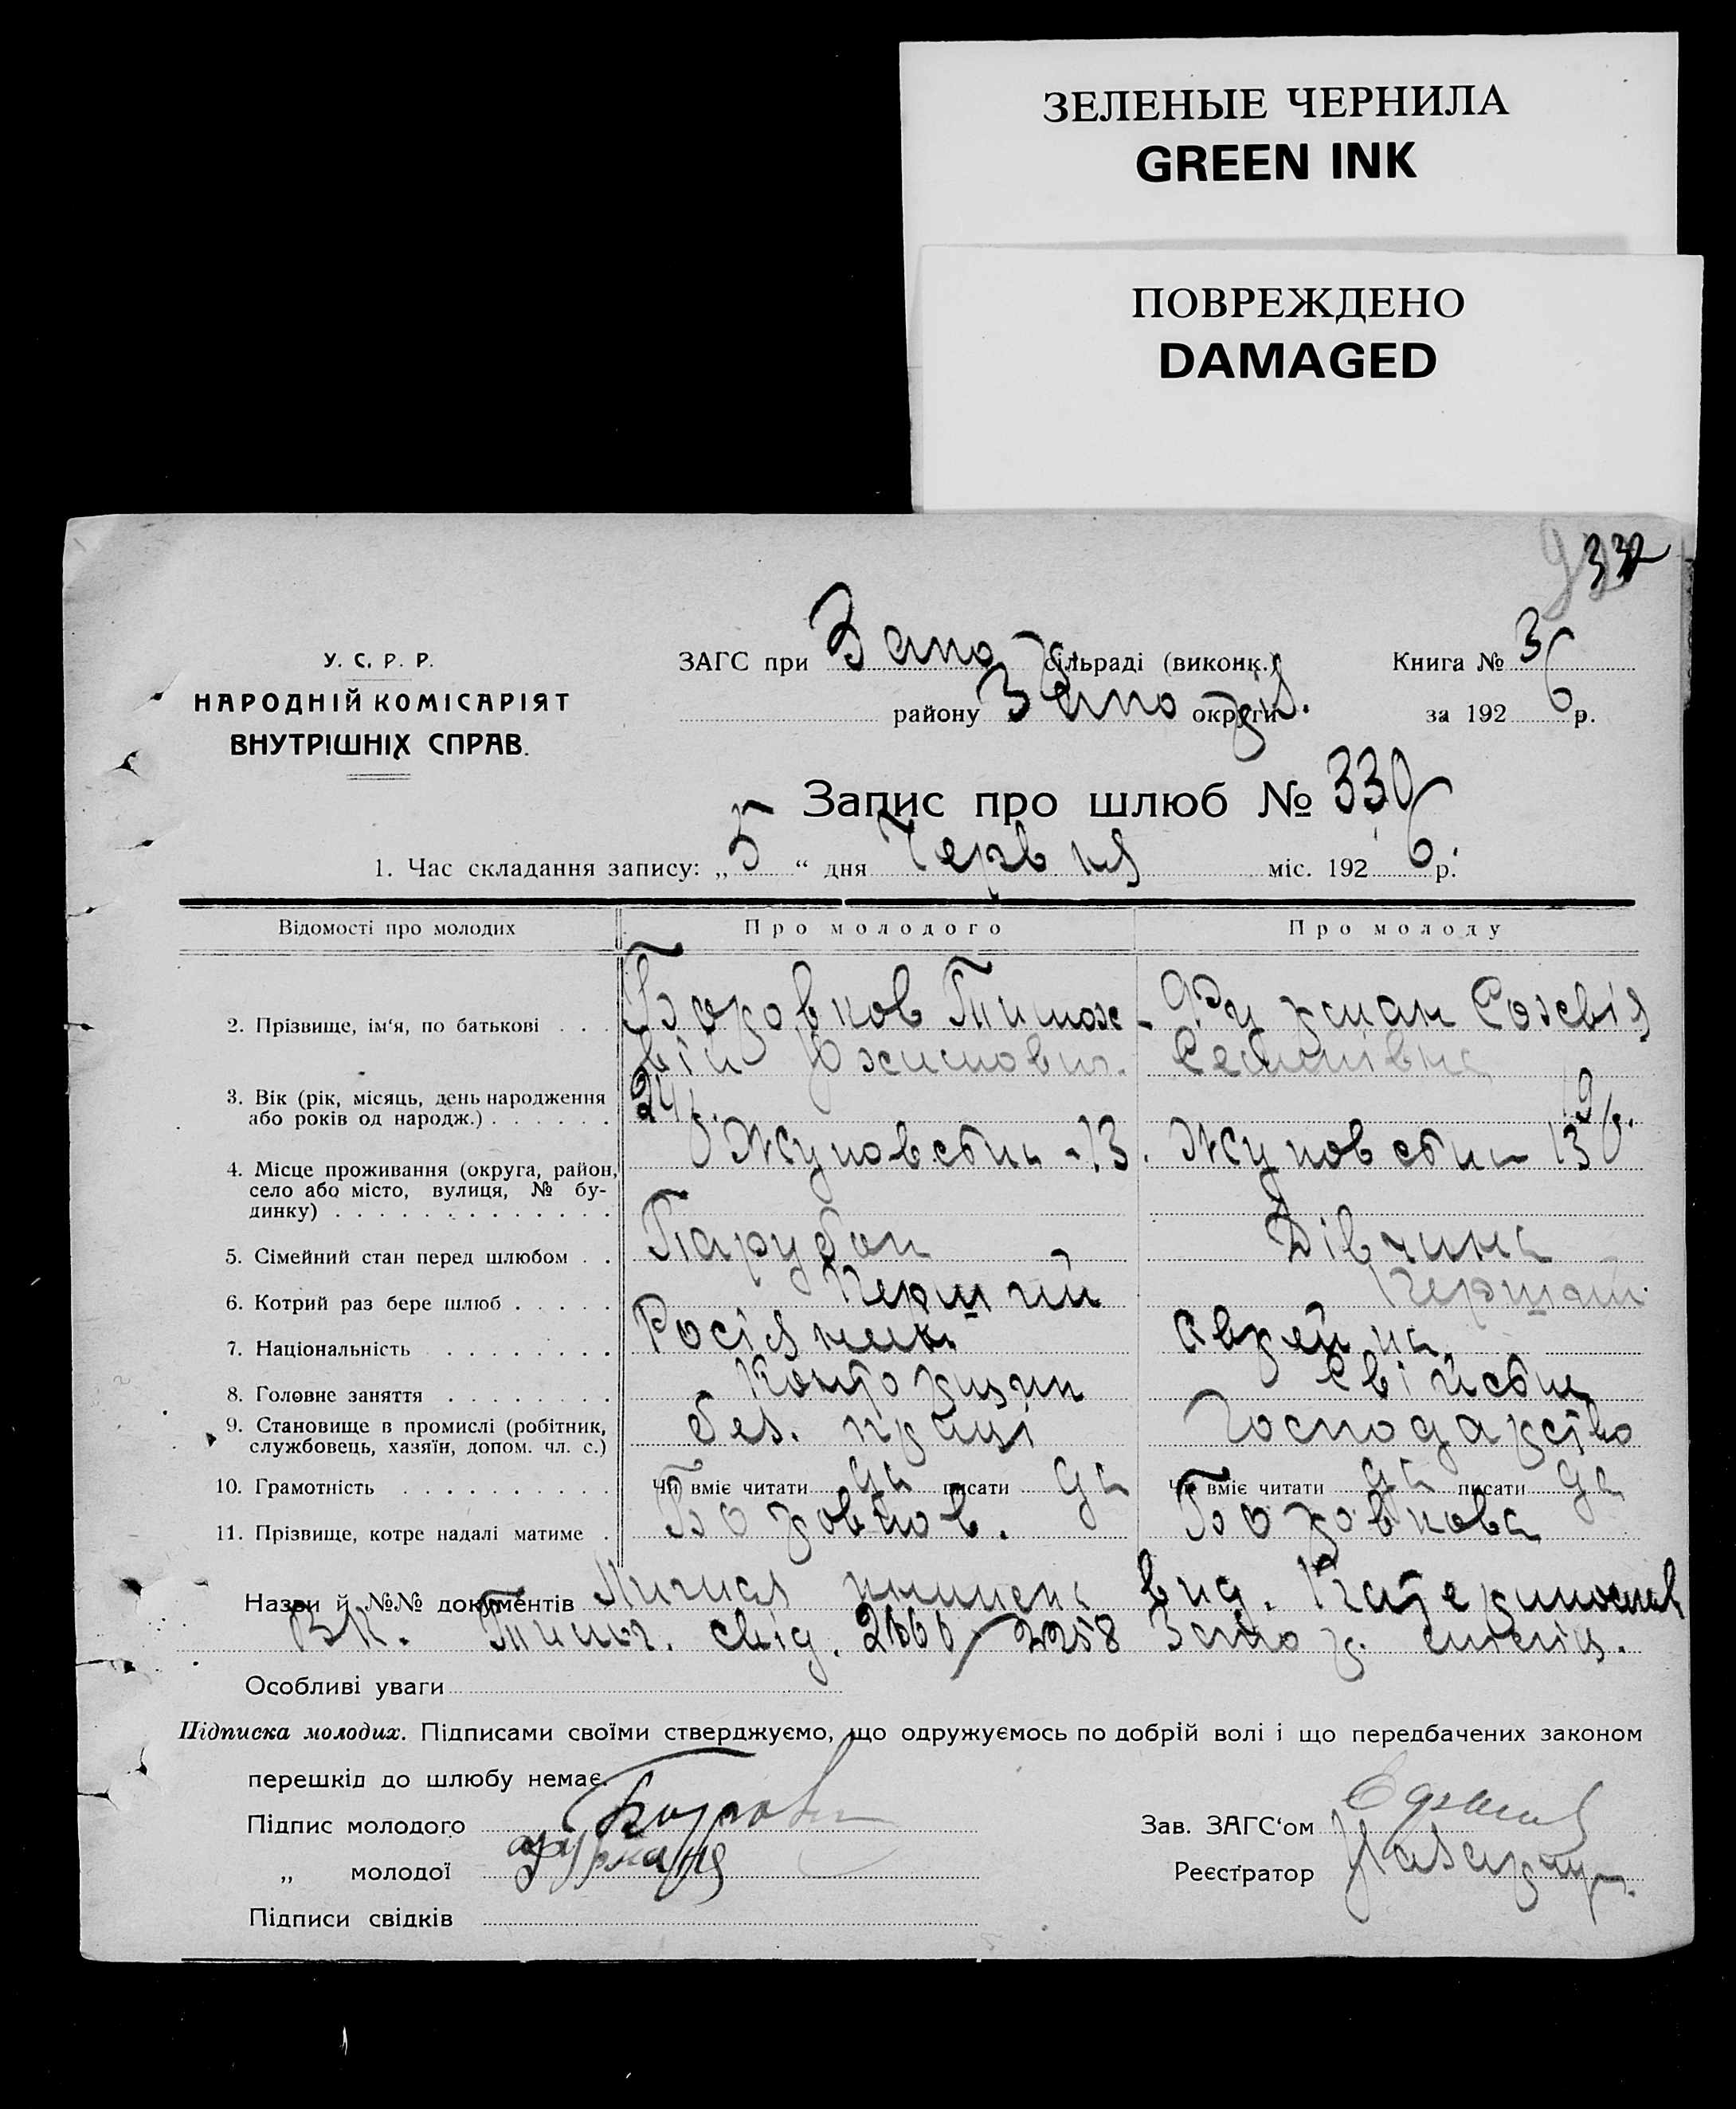 ЗЕЛЕНЫЕ ЧЕРНИЛА
GREEN INK
ПОВРЕЖДЕНО
DAMAGED
332
У. С. Р. Р.
НАРОДНІЙ КОМІСАРІЯТ
ВНУТРІШНІХ СПРАВ.
ЗАГС при Запо сільраді (виконк.)
Книга № 3
району Запо округи
за 1926 р.
Запис про шлюб № 330
1. Час складання запису: „5“ дня Червня міс. 1926 р.
Відомості про молодих
Про молодого
Про молоду
2. Прізвище, ім‘я, по батькові
Боровков Тимох-
Фурман
вій
3. Вік (рік, місяць, день народження
або років од народж.)
24
19
4. Місце проживання (округа, район,
село або місто, вулиця, № бу-
динку)
Жуковськ -13.
Жуковськ 13
5. Сімейний стан перед шлюбом
Парубок
Дівчина
6. Котрий раз бере шлюб
Перший
Перший
7. Національність
Росіянин
Єврейка
8. Головне заняття
Конторщик
Свійське
9. Становище в промислі (робітник,
службовець, хазяїн, допом. чл. с.)
без. праці
Господарство
10. Грамотність
Чи вміє читати да писати да
Чи вміє читати да писати да
11. Прізвище, котре надалі матиме
Боровков.
Боровкова
Назви й №№ документів книжка вид. Катеринослав
ВК. свід. 2258 Запор.
Особливі уваги
Підписка молодих. Підписами своїми стверджуємо, що одружуємось по добрій волі і що передбачених законом
перешкід до шлюбу немає.
Підпис молодого
Зав. ЗАГС‘ом
„ молодої
Реєстратор
Підписи свідків